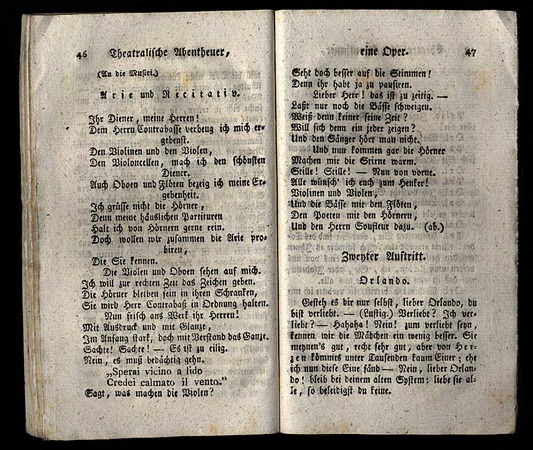 46 Theatralische Abentheuer,
(An die Musici.)
Arie und Recitativ.
Ihr Diener, meine Herren!
Dem Herrn Contrabasse verbeug ich mich er-
gebenst.
Den Violinen und den Violen,
Den Violoncellen, mach ich den schönsten
Diener.
Auch Oboen und Flöten bezeig ich meine Er-
gebenheit.
Ich grüsse nicht die Hörner,
Denn meine häuslichen Partituren
Halt ich von Hörnern gerne rein.
Doch wollen wir zusammen die Arie pro-
biren,
Die Sie kennen.
Die Violen und Oboen sehen auf mich.
Ich will zur rechten Zeit das Zeichen geben.
Die Hörner bleiben fein in ihren Schranken,
Sie wird Herr Contrabaß in Ordnung halten.
Nun frisch ans Werk ihr Herren!
Mit Ausdruck und mit Glanze,
Im Anfang stark, doch mit Verstand das Ganze.
Sachte! Sachte! — Es ist zu eilig.
Nein, es muß bedächtig gehn.
„Sperai vicino a lido
Credei calmato il vento.“
Sagt, was machen die Violen?
eine Oper. 47
Seht doch besser auf die Stimmen!
Denn ihr habt ja zu pausiren.
Lieber Herr! das ist zu zeitig. —
Laßt nur noch die Bässe schweigen.
Weiß denn keiner seine Zeit?
Will sich denn ein jeder zeigen?
Und den Sänger hört man nicht.
Und nun kommen gar die Hörner
Machen mir die Stirne warm.
Stille! Stille! — Nun von vorne.
Alle wünsch' ich euch zum Henker!
Violinen und Violen,
Und die Bässe mit den Flöten,
Den Poeten mit den Hörnern,
Und den Herrn Soufleur dazu. (ab.)
Zweyter Auftritt.
Orlando.
Gesteh es dir nur selbst, lieber Orlando, du
bist verliebt. — (Lustig.) Verliebt? Ich ver-
liebt? — Hahaha! Nein! zum verliebt seyn,
kennen wir die Mädchen ein wenig besser. Sie
meynen's gut, recht sehr gut, aber von Her-
zen kömmt unter Tausenden kaum Einer; ehe
ich nun diese Eine fänd — Nein, lieber Orlan-
do! bleib bei deinem alten System: liebe sie al-
le, so beleidigst du keine.